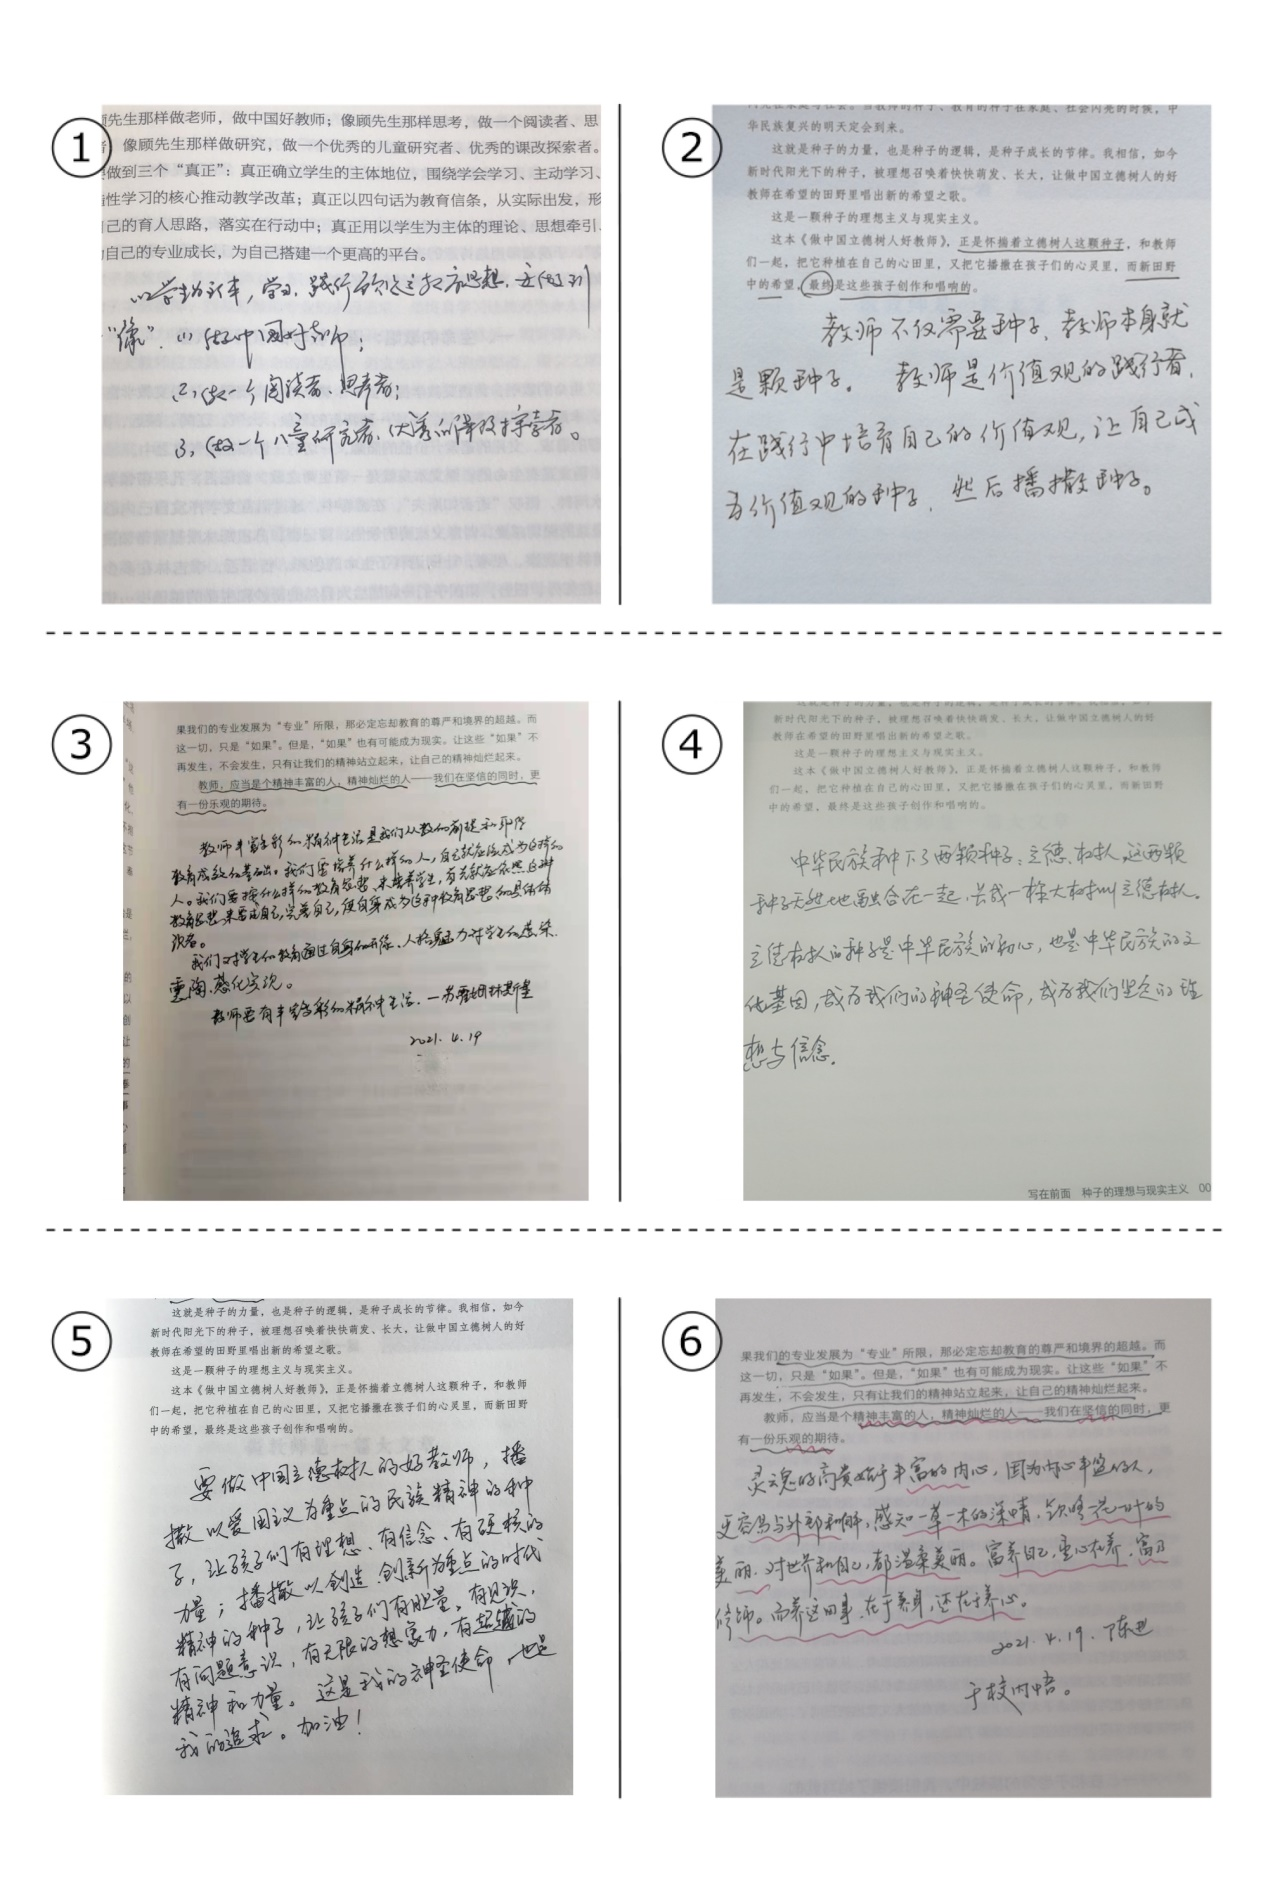 ①
顾先生那样做老师，做中国好教师；像顾先生那样思考，做一个阅读者、思
像顾先生那样做研究，做一个优秀的儿童研究者、优秀的课改探索者。
做到三个“真正”：真正确立学生的主体地位，围绕学会学习、主动学习、
性学习的核心推动教学改革；真正以四句话为教育信条，从实际出发，形
己的育人思路，落实在行动中；真正用以学生为主体的理论、思想牵引
自己的专业成长，为自己搭建一个更高的平台。
以学生为主体，学习、践行顾先生教育思想，要做到
“像”：(1)做中国好教师；
(2)做一个阅读者、思考者；
(3)做一个儿童研究者、优秀的课改探索者。
②
华民族复兴的明天定会到来。
这就是种子的力量，也是种子的逻辑，是种子成长的节律。我相信，如今
新时代阳光下的种子，被理想召唤着快快萌发、长大，让做中国立德树人的好
教师在希望的田野里唱出新的希望之歌。
这是一颗种子的理想主义与现实主义。
这本《做中国立德树人好教师》，正是怀揣着立德树人这颗种子，和教师
们一起，把它种植在自己的心田里，又把它播撒在孩子们的心灵里，而新田野
中的希望，最终是这些孩子创作和唱响的。
教师不仅需要种子，教师本身就
是颗种子。教师是价值观的践行者，
在践行中培育自己的价值观，让自己成
为价值观的种子，然后播撒种子。
③
果我们的专业发展为“专业”所限，那必定忘却教育的尊严和境界的超越。而
这一切，只是“如果”。但是，“如果”也有可能成为现实。让这些“如果”不
再发生，不会发生，只有让我们的精神站立起来，让自己的精神灿烂起来。
教师，应当是个精神丰富的人，精神灿烂的人——我们在坚信的同时，更
有一份乐观的期待。
教师丰富多彩的精神生活是我们从教的前提和取得
教育成效的基础。我们要培养什么样的人，自己就应该成为这样的
人。我们要按什么样的教育思想来培养学生，首先就应依照这种
教育思想来要求自己，完善自己，使自身成为这种教育思想的具体体
现者。
我们对学生的教育通过自身的形象、人格魅力对学生的感染、
熏陶、感化实现。
教师要有丰富多彩的精神生活。—苏霍姆林斯基
2021.4.19
④
新时代阳光下的种子，被理想召唤着快快萌发、长大，让做中国立德树人的好
教师在希望的田野里唱出新的希望之歌。
这是一颗种子的理想主义与现实主义。
这本《做中国立德树人好教师》，正是怀揣着立德树人这颗种子，和教师
们一起，把它种植在自己的心田里，又把它播撒在孩子们的心灵里，而新田野
中的希望，最终是这些孩子创作和唱响的。
中华民族种下了两颗种子：立德、树人，这两颗
种子天然地融合在一起，长成一棵大树叫立德树人。
立德树人的种子是中华民族的初心，也是中华民族的文
化基因，成为我们的神圣使命，成为我们坚定的理
想与信念。
写在前面 种子的理想与现实主义 00
⑤
这就是种子的力量，也是种子的逻辑，是种子成长的节律。我相信，如今
新时代阳光下的种子，被理想召唤着快快萌发、长大，让做中国立德树人的好
教师在希望的田野里唱出新的希望之歌。
这是一颗种子的理想主义与现实主义。
这本《做中国立德树人好教师》，正是怀揣着立德树人这颗种子，和教师
们一起，把它种植在自己的心田里，又把它播撒在孩子们的心灵里，而新田野
中的希望，最终是这些孩子创作和唱响的。
要做中国立德树人的好教师，播
撒以爱国主义为重点的民族精神的种
子，让孩子们有理想、有信念、有硬核的
力量；播撒以创造、创新为重点的时代
精神的种子，让孩子们有胆量，有见识，
有问题意识，有无限的想象力，有超越的
精神和力量。这是我的神圣使命，也是
我的追求。加油！
⑥
果我们的专业发展为“专业”所限，那必定忘却教育的尊严和境界的超越。而
这一切，只是“如果”。但是，“如果”也有可能成为现实。让这些“如果”不
再发生，不会发生，只有让我们的精神站立起来，让自己的精神灿烂起来。
教师，应当是个精神丰富的人，精神灿烂的人——我们在坚信的同时，更
有一份乐观的期待。
灵魂的高贵始于丰富的内心，因为内心丰盈的人，
更容易与外部和解，感知一草一木的深情，领略一花一叶的
美丽，对世界和自己，都温柔美丽。富养自己，重心在养，富乃
修饰。而养这回事，在于养身，还在于养心。
2021.4.19.
于校内悟。